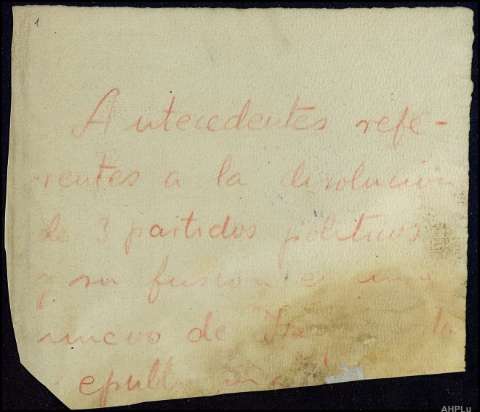 1
Antecedentes refe-
rentes a la disolución
de 3 partidos políticos
y su fusión en un
nuevo de
AHPLu